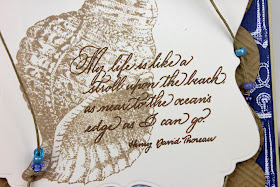 My life is like a
stroll upon the beach
as near to the ocean's
edge as I can go.
Henry David Thoreau